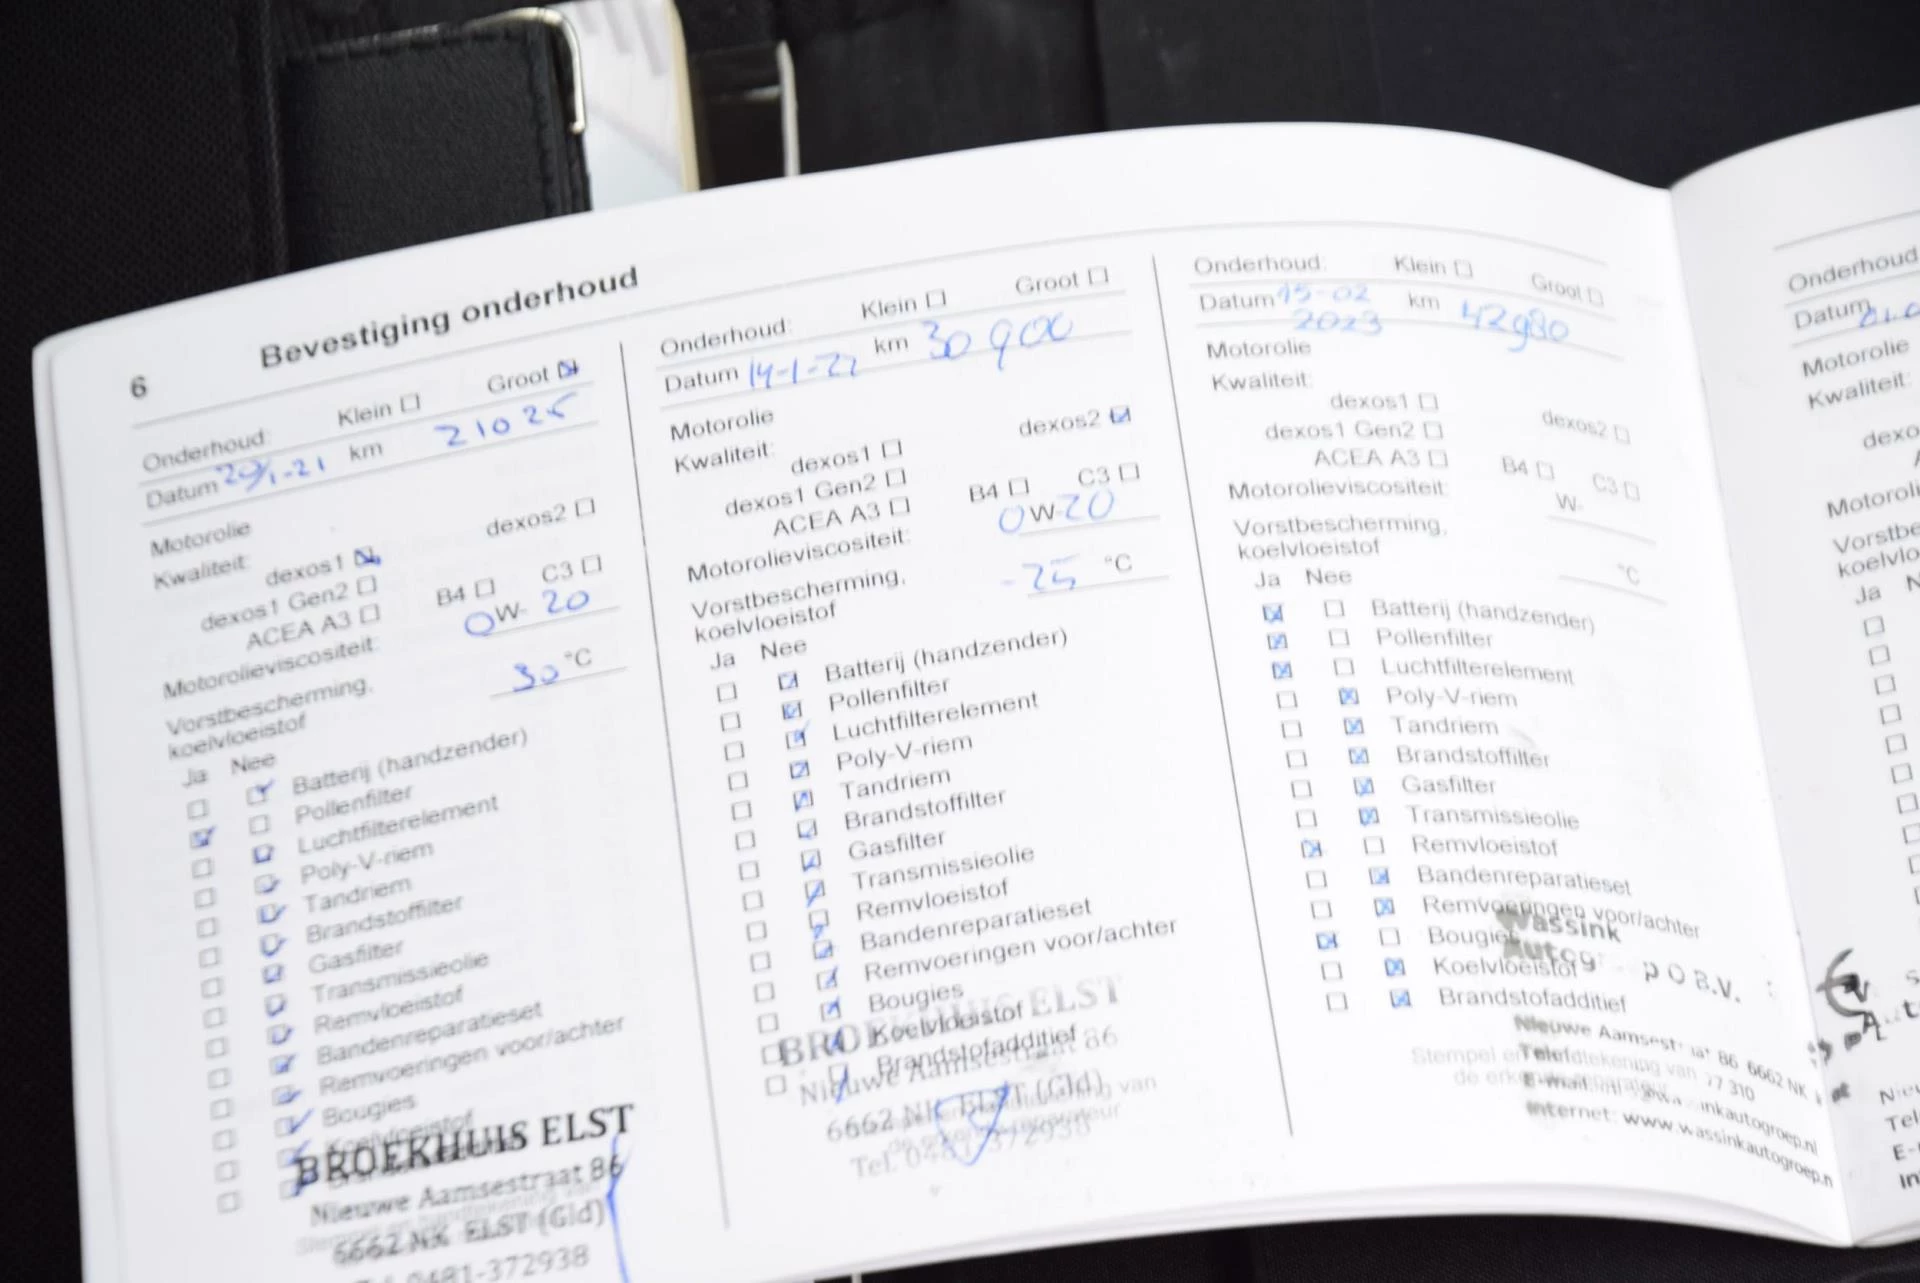 6 Bevestiging onderhoud
Onderhoud: Klein Groot
Datum 20/1-21 km 21025
Motorolie
Kwaliteit: dexos1 dexos2
dexos1 Gen2
ACEA A3 B4 C3
Motorolieviscositeit: 0W-20
Vorstbescherming,
koelvloeistof 30 °C
Ja Nee
Batterij (handzender)
Pollenfilter
Luchtfilterelement
Poly-V-riem
Tandriem
Brandstoffilter
Gasfilter
Transmissieolie
Remvloeistof
Bandenreparatieset
Remvoeringen voor/achter
Bougies
Koelvloeistof
BROEKHUIS ELST
Nieuwe Aamsestraat 86
6662 NK ELST (Gld)
0481-372938
Onderhoud: Klein Groot
Datum 14-1-22 km 30900
Motorolie
Kwaliteit: dexos1 dexos2
dexos1 Gen2
ACEA A3 B4 C3
Motorolieviscositeit: 0W-20
Vorstbescherming,
koelvloeistof -25 °C
Ja Nee
Batterij (handzender)
Pollenfilter
Luchtfilterelement
Poly-V-riem
Tandriem
Brandstoffilter
Gasfilter
Transmissieolie
Remvloeistof
Bandenreparatieset
Remvoeringen voor/achter
Bougies
Koelvloeistof
Brandstofadditief
BROEKHUIS ELST
Nieuwe Aamsestraat 86
6662 NK ELST (Gld)
Tel. 0481-372938
Onderhoud: Klein Groot
Datum 15-02 2023 km 42980
Motorolie
Kwaliteit:
dexos1 dexos2
dexos1 Gen2
ACEA A3 B4 C3
Motorolieviscositeit: W-
Vorstbescherming,
koelvloeistof °C
Ja Nee
Batterij (handzender)
Pollenfilter
Luchtfilterelement
Poly-V-riem
Tandriem
Brandstoffilter
Gasfilter
Transmissieolie
Remvloeistof
Bandenreparatieset
Remvoeringen voor/achter
Bougies
Koelvloeistof
Brandstofadditief
Wassink
B.V.
Nieuwe 86 6662 NK
Stempel en
Internet: www.wassinkautogroep.n
Onderhoud
Datum
Motorolie
Kwaliteit:
Ja